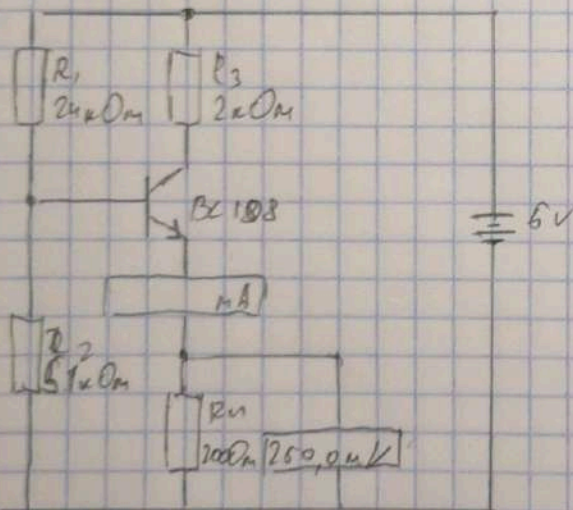 R₁
24кОм
R₃
2кОм
BC108
6V
mA
51кОм
Rн
200Ом
250,0мV